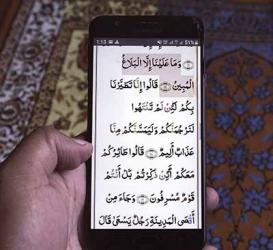 1:13 51%
وَمَا عَلَيْنَا إِلَّا الْبَلَاغُ
الْمُبِينُ ۝ قَالُوا إِنَّا تَطَيَّرْنَا
بِكُمْ لَئِن لَّمْ تَنتَهُوا
لَنَرْجُمَنَّكُمْ وَلَيَمَسَّنَّكُم مِّنَّا
عَذَابٌ أَلِيمٌ ۝ قَالُوا طَائِرُكُم
مَّعَكُمْ أَئِن ذُكِّرْتُم بَلْ أَنتُمْ
قَوْمٌ مُّسْرِفُونَ ۝ وَجَاءَ مِنْ
أَقْصَى الْمَدِينَةِ رَجُلٌ يَسْعَىٰ قَالَ